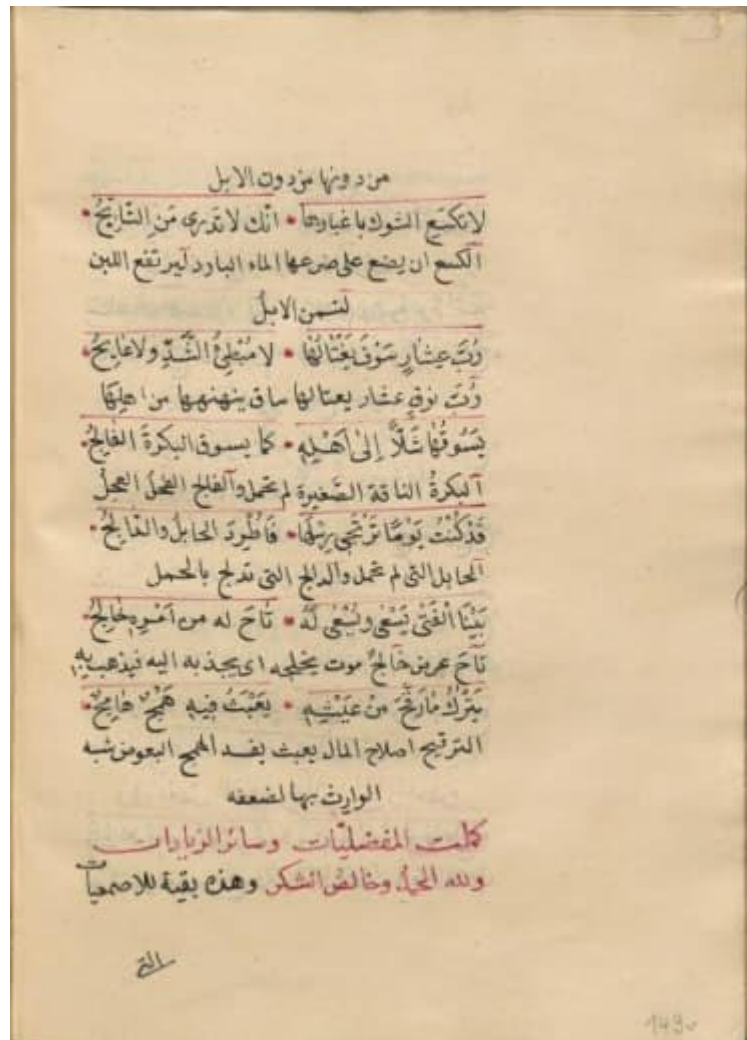 من دونها من دون الابل
لا تكسع الشول باغبارها • انك لا تدرى من الناتج •
الكسع ان يضع على ضرعها الماء البارد ليرتفع اللبن
لتسمن الابل
رُبَّ عِشارٍ سَوْفَ يَغْتَالُهَا • لا مُبْطِئُ الشَّدِّ ولا عايجُ •
رُبَّ نوقٍ عشار يغتالها ساق ينهنهها من اهلها
يَسُوقُهَا شَلًّا إِلى اَهْلِهِ • كما يسوق البكرةَ الفالجُ •
البكرةُ الناقة الصَّغيرة لم تحمل والفالج الفحلُ
قَدْ كُنْتُ يَوْمًا تَرْتَجى رِسْلَهَا • فَاُطْرِدَ الحايلُ والدّالجُ •
الحايل التى لم تحمل والدالج التى تدلج بالحمل
بَيْنَا الْفَتىٰ يَسْعى ويُسْعى لَهُ • تَاحَ له من اَمْرِهِ خالجُ •
تَاحَ عرض خالجٌ موت يخلجه اى يجذبه اليه فيذهب به
يَتْرُكُ مَا رَقَّحَ مِنْ عَيْشِهِ • يَعْبَثُ فيهِ هَمَجٌ هَامِجٌ •
الترقيح اصلاح المال يعبث يفسد الهمج البعوض شبه
الوارث بها لضعفه
كملت المفضليّات وسائر الزيادات
ولله الحمد وخالص الشكر وهذه بقية للاصمعيات
1490